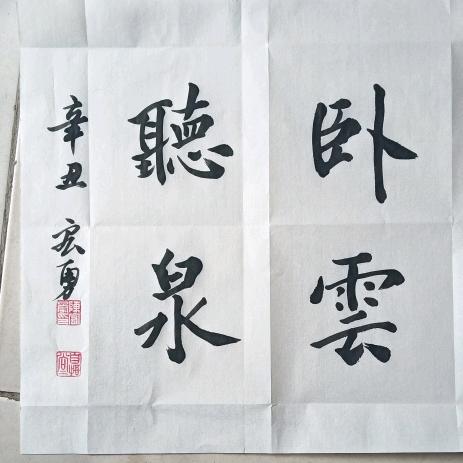 卧雲
聽泉
辛丑 宏勇